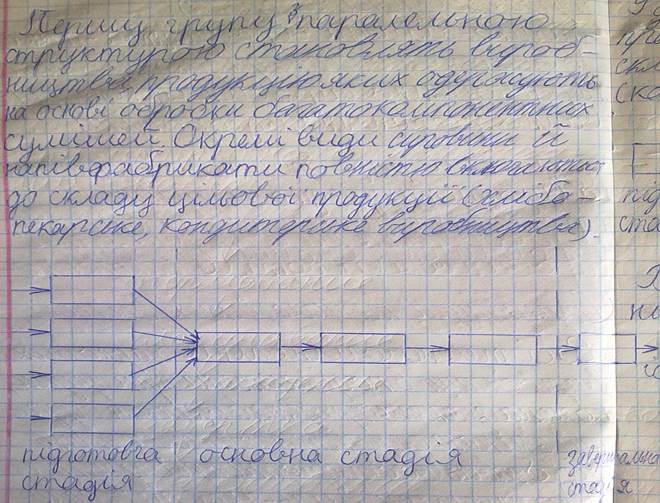 Першу групу з паралельною
структурою становлять вироб-
ництва, продукцію яких одержують
на основі обробки багатокомпонентних
сумішей. Окремі види сировини й
напівфабрикати повністю включаються
до складу цільової продукції (хлібо-
пекарське, кондитерське виробництва).
підготовча основна стадія
стадія